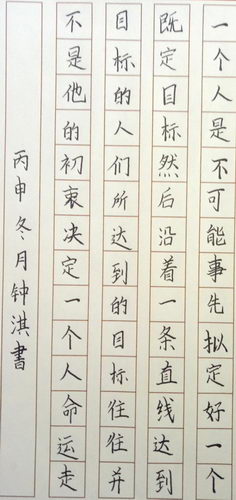 一个人是不可能事先拟定好一个
既定目标然后沿着一条直线达到
目标的人们所达到的目标往往并
不是他的初衷决定一个人命运走
丙申冬月钟淇書